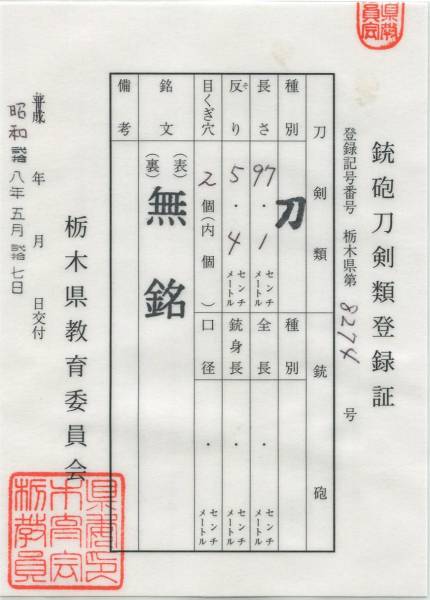 銃砲刀剣類登録証
登録記号番号 栃木県第 8274 号
刀剣類 銃砲
種別 刀 種別
長さ 97.1 センチメートル 全長 . センチメートル
反り(そり) 5.4 センチメートル 銃身長 . センチメートル
目くぎ穴 2個(内 個) 口径 . センチメートル
銘文 (表) 無銘
(裏)
備考
栃木県教育委員会
平成 年 月 日交付
昭和 八年五月 七日